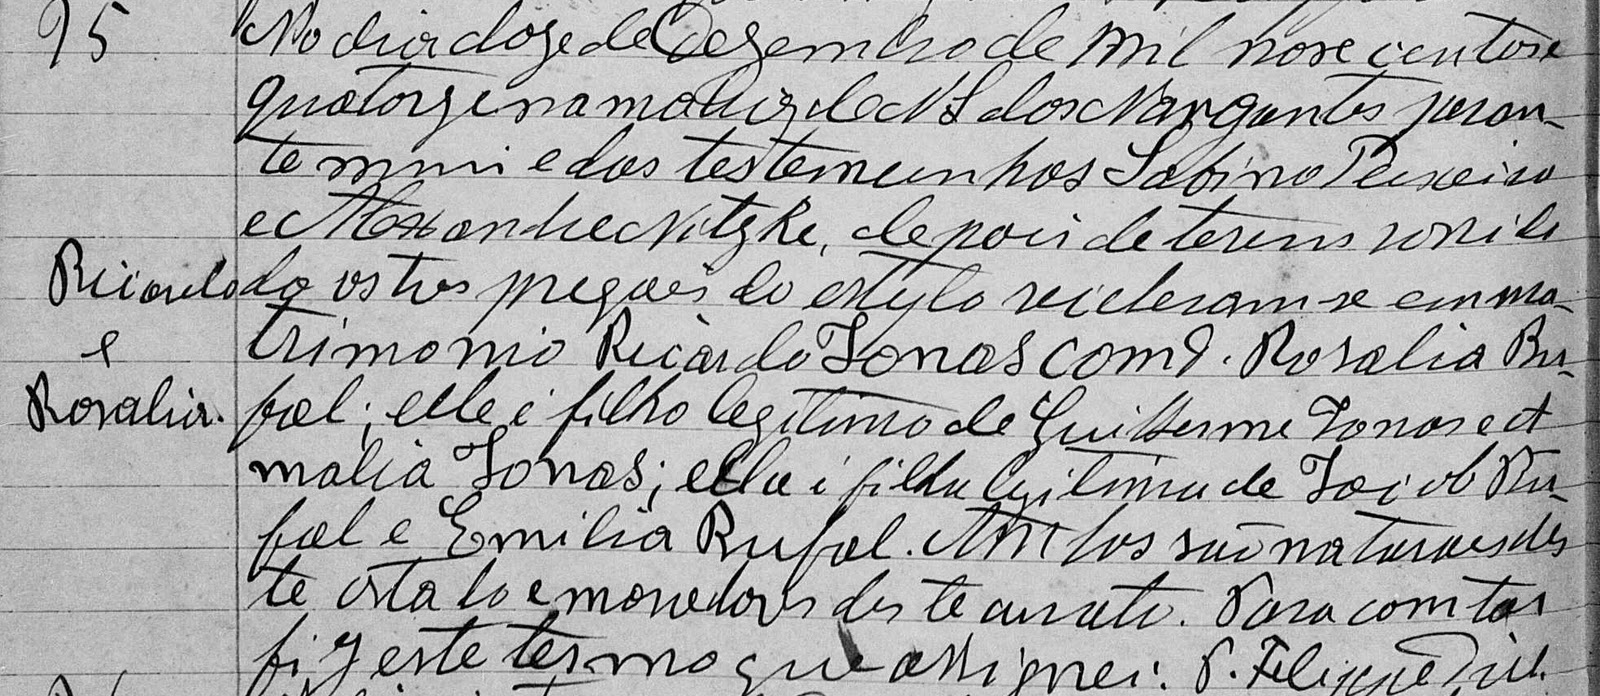 95
No dia doze de Dezembro de mil nove centos e
quatorze na matriz de N S dos Navegantes peran-
te mim e das testemunhas Sabino Teixeira
e Alexandre Nitzke, depois de terem
Ricardo do os tres pregões do estylo receberam-se em ma-
e trimonio Ricardo Jonas com D. Rosalia Ru-
Rosalia. fal; elle é filho legitimo de Guilherme Jonas e A
malia Jonas; ella é filha legitima de Jacob Ru-
fal e Emilia Rufal. Ambos são naturaes des
te estado e moradores deste curato. Para constar
fiz este termo que assignei: P. Felippe